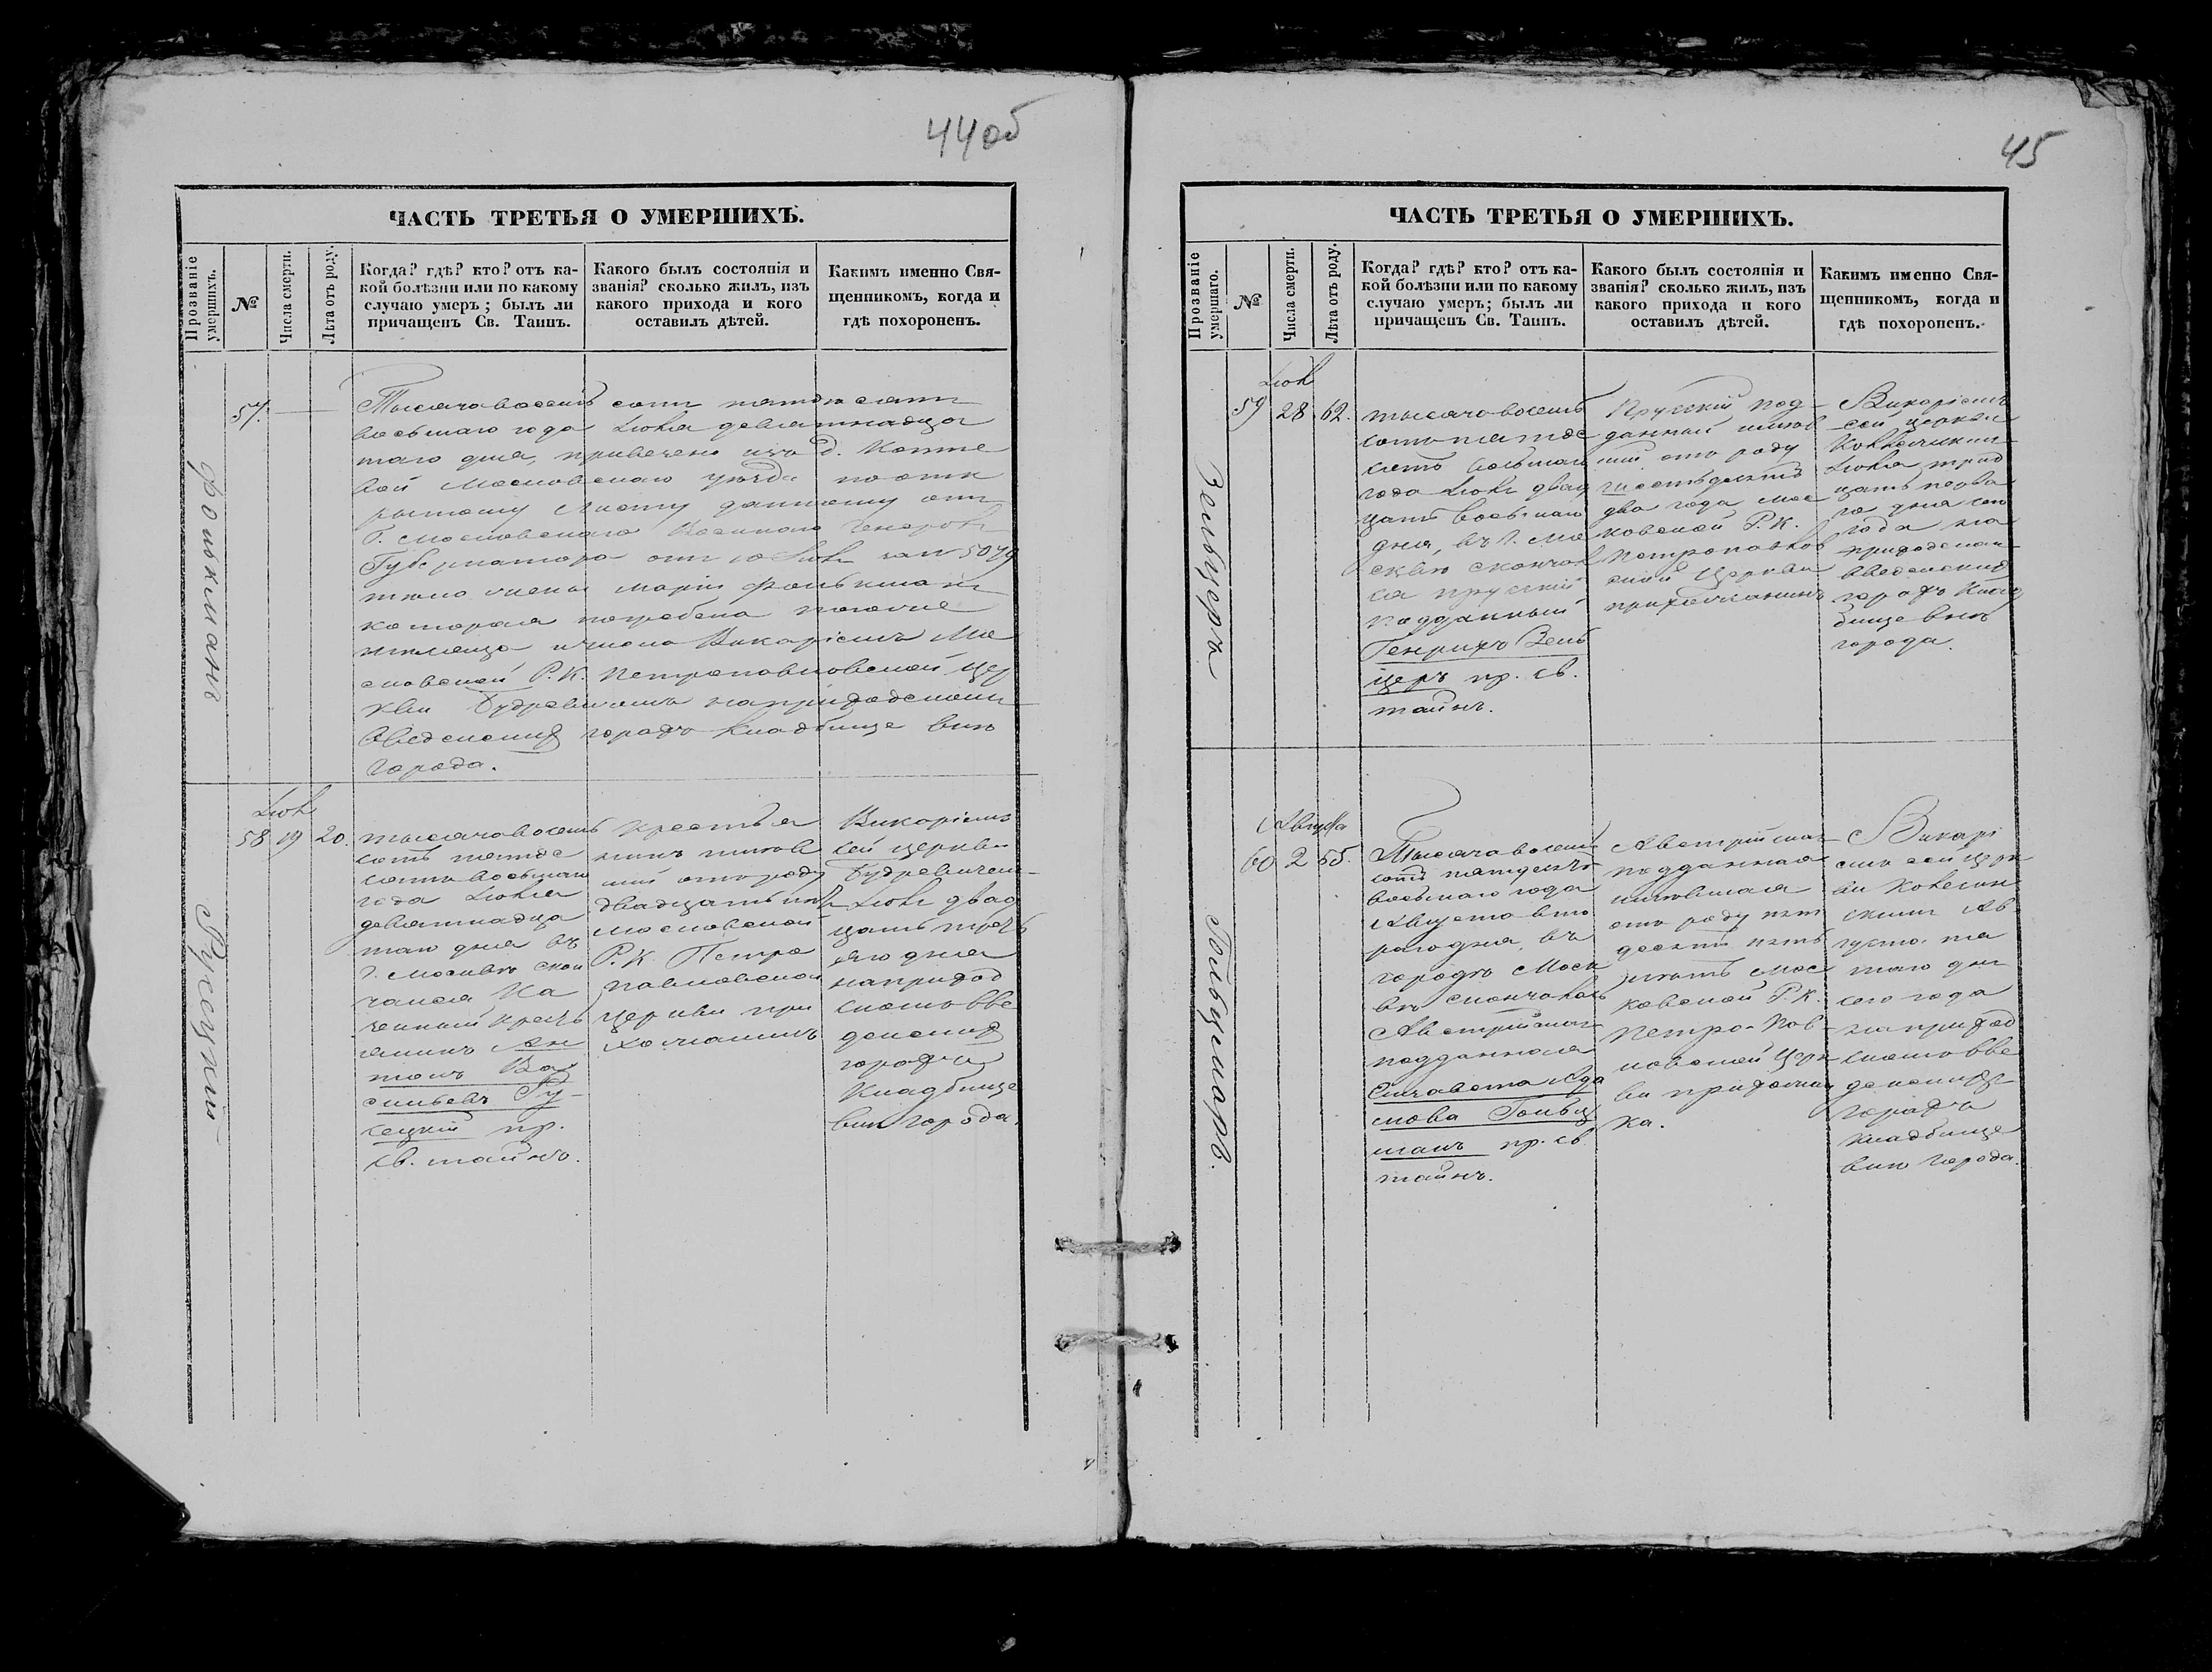 44 об
ЧАСТЬ ТРЕТЬЯ О УМЕРШИХЪ.
Прозваніе умершихъ.
№
Числа смерти.
Лѣта отъ роду.
Когда? гдѣ? кто? отъ ка-
кой болѣзни или по какому
случаю умеръ; былъ ли
причащенъ Св. Таинъ.
Какого былъ состоянія и
званія? сколько жилъ, изъ
какого прихода и кого
оставилъ дѣтей.
Какимъ именно Свя-
щенникомъ, когда и
гдѣ похороненъ.
Фолькманъ
57.
Тысяча восемь сотъ пятьдесятъ
восьмаго года Іюля девятнадца
таго дня, привезено изъ д.
вой Московскаго уѣзда по отк
рытому листу данному отъ
Г. Московскаго Военнаго Генералъ
Губернатора отъ Іюля за № 5079
тѣло Маріи Фолькманъ
которая погребена тогоже
мѣсяца и числа Викаріемъ Мо
сковской Р. К. Петропавловской Цер
кви Будревичемъ на приходскомъ
Введенскихъ горахъ Кладбище внѣ
города.
Руцецкій
Іюль
58 19 20.
тысяча восемь
сотъ пятьде
сятъ восьмаго
года Іюля
девятнадца
таго дня въ
г. Москвѣ скон
чался Ка
зенный крестья
нинъ Ан
тонъ Ва
сильевъ Ру-
сецкій пр.
св. тайнъ.
Крестья
нинъ жив
шій отъ роду
двадцать лѣтъ
Московской
Р. К. Петро
павловской
Церкви при
хожанинъ
Викаріемъ
сей церкви
Будревичемъ
Іюля двад
цать треть
яго дня
на приход
скомъ Вве
денскихъ
горахъ
Кладбище
внѣ города.
45
ЧАСТЬ ТРЕТЬЯ О УМЕРШИХЪ.
Прозваніе умершаго.
№
Числа смерти.
Лѣта отъ роду.
Когда? гдѣ? кто? отъ ка-
кой болѣзни или по какому
случаю умеръ; былъ ли
причащенъ Св. Таинъ.
Какого былъ состоянія и
званія? сколько жилъ, изъ
какого прихода и кого
оставилъ дѣтей.
Какимъ именно Свя-
щенникомъ, когда и
гдѣ похороненъ.
Зельцеръ
Іюль
59 28 62.
тысяча восемь
сотъ пятьде
сятъ восьмаго
года Іюля двад
цать восьмаго
дня, въ г. Мо
сквѣ скончал
ся прусскій
подданный
Генрихъ Зель
церъ пр. св.
тайнъ.
Прусскій под-
данный жив
шій отъ роду
шестьдесятъ
два года Мос
ковской Р. К.
Петропавлов
ской Церкви
прихожанинъ
Викаріемъ
сей церкви
Іюля трид
цать перва
го дня сего
года на
приходскомъ
Введенскихъ
горахъ Клад
бище внѣ
города.
Августа
60 2 55.
Тысяча восемь
сотъ пятьдесятъ
восьмаго года
Августа вто
раго дня, въ
городѣ Моск
вѣ скончалась
Австрійская
подданная
Елизавета Ада
мова Гольц
манъ пр. св.
тайнъ.
Австрійская
подданная
жившая
отъ роду пять
десятъ пять
лѣтъ Мос
ковской Р. К.
Петро-Пав-
ловской Церк
ви прихожан
ка.
Викарі
емъ сей Церк
ви
Ав-
густа
таго дня
сего года
на приход
скомъ Вве
денскихъ
горахъ
Кладбище
внѣ города.